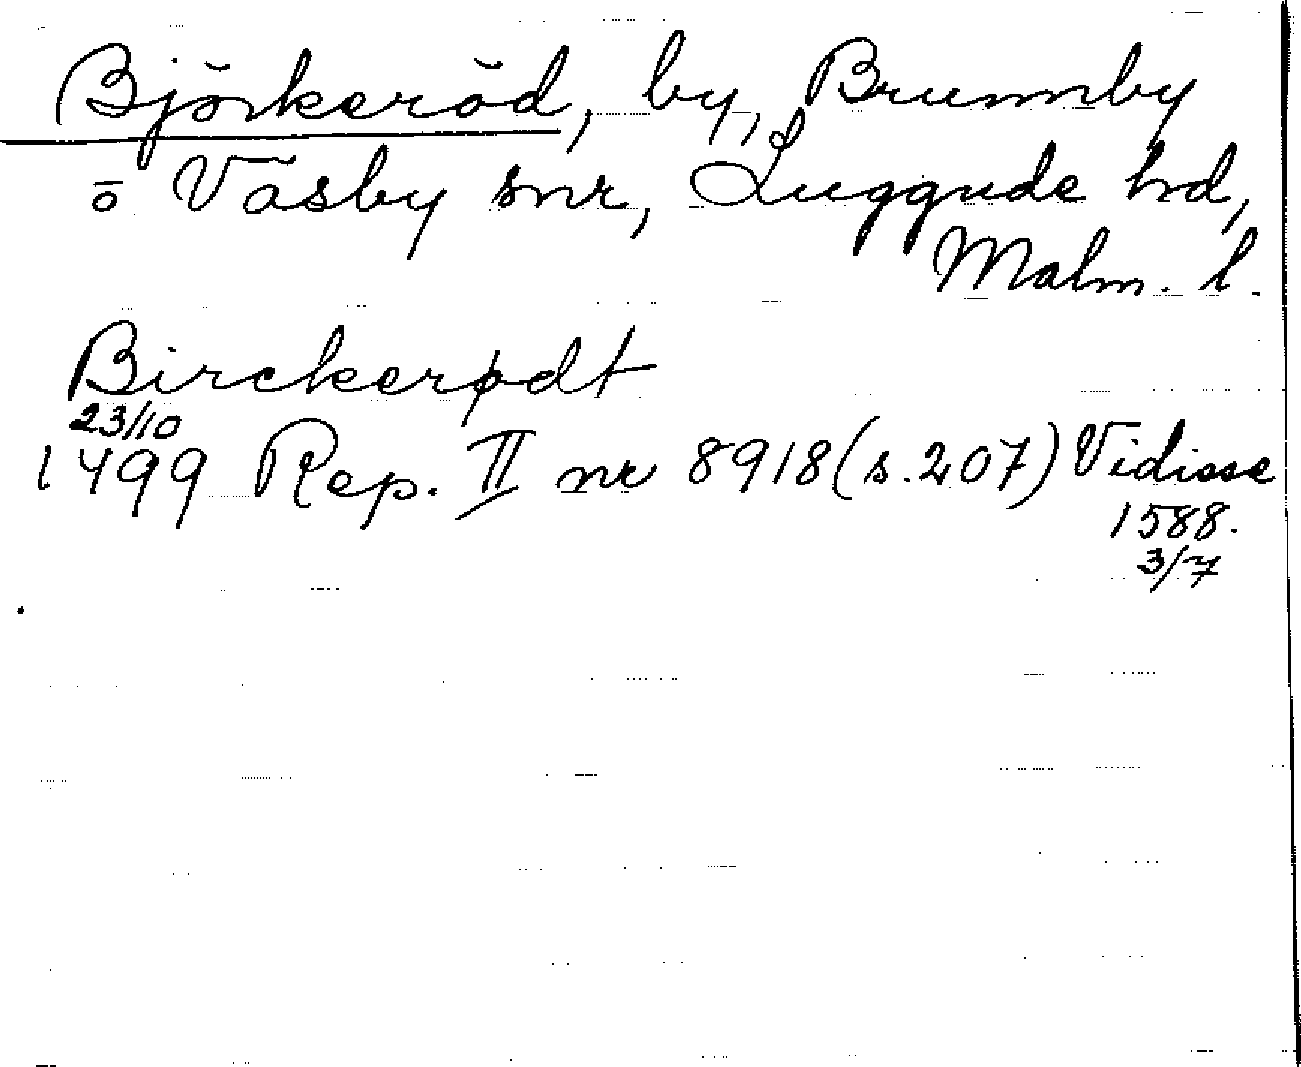 Björkeröd, by, Brunnby
o Väsby snr, Luggude hd,
Malm. l.
Birckerødt
23/10
1499 Rep. II nr 8918 (s. 207) Vidisse
1588.
3/7